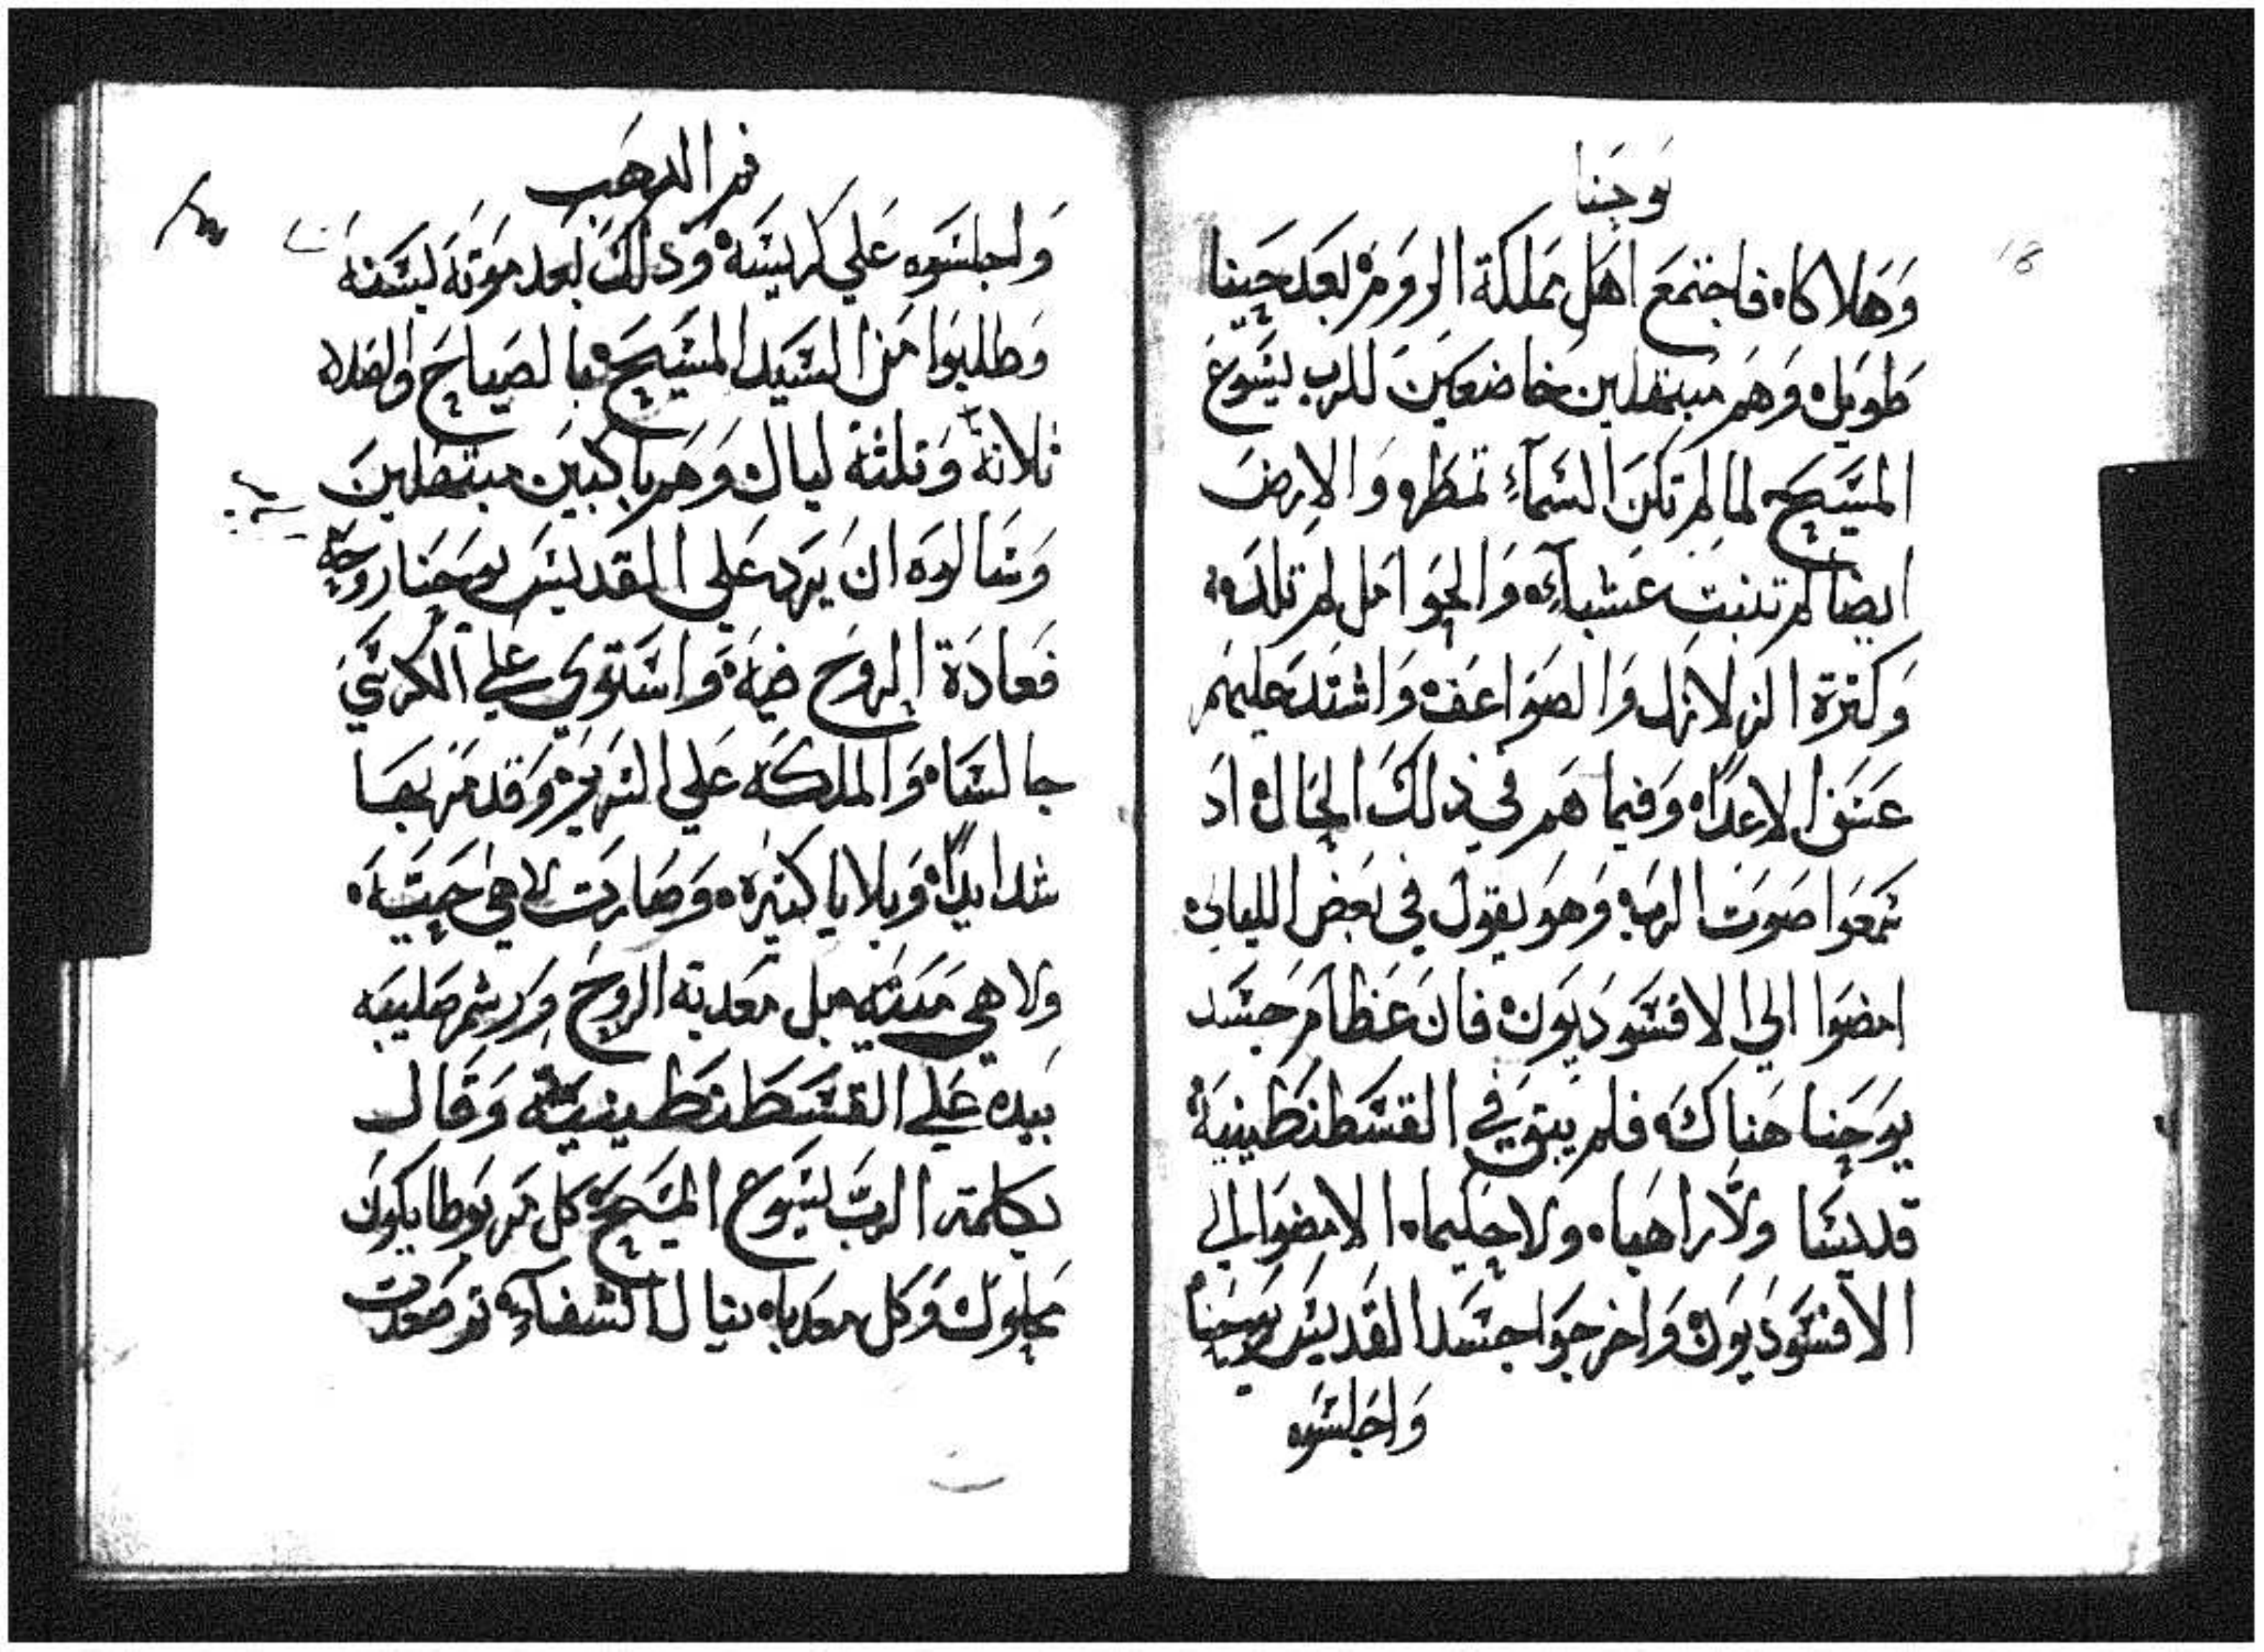 يوحنا
18
وهلاكاه فاجتمع اهل مملكة الروم بعد حينا
طويل وهم مبتهلين خاضعين للرب يسوع
المسيح لما لم تكن السماء تمطر والارض
ايضا لم تنبت عشباء والحوامل لم تلد
وكثرة الزلازل والصواعق واشتد عليهم
الاعداء وفيما هم في ذلك الحال اد
سمعوا صوت الرب وهو يقول في بعض الليالي
امضوا الي الافسوديون فان عظام جسد
يوحنا هناك فلم يبق في القسطنطينية
قديسا ولا راهبا ولا حكيما الا مضوا الي
الافسوديون واخرجوا جسد القديس يوحنا
واجلسوه
فم الدهب
واجلسوه علي كرسيه ودلك بعد موته لسنة
وطلبوا من السيد المسيح بالصياح والصلاه
ثلاثة وتلثة ليال وهم باكيين مبتهلين
وسالوه ان يرد علي القديس يوحنا روحه
فعادة الروح فيه واستوي علي الكرسي
جالسا والملكه علي السرير وقد مر بها
شدايدا وبلايا كتيره وصارت لا هي حيه
ولا هي ميته بل معدبة الروح ورشم صليبه
بيده علي القسطنطينية وقال
بكلمة الرب يسوع المسيح كل مربوطا يكون
محلول وكل معدبا ينال الشفاء ثم صعدت